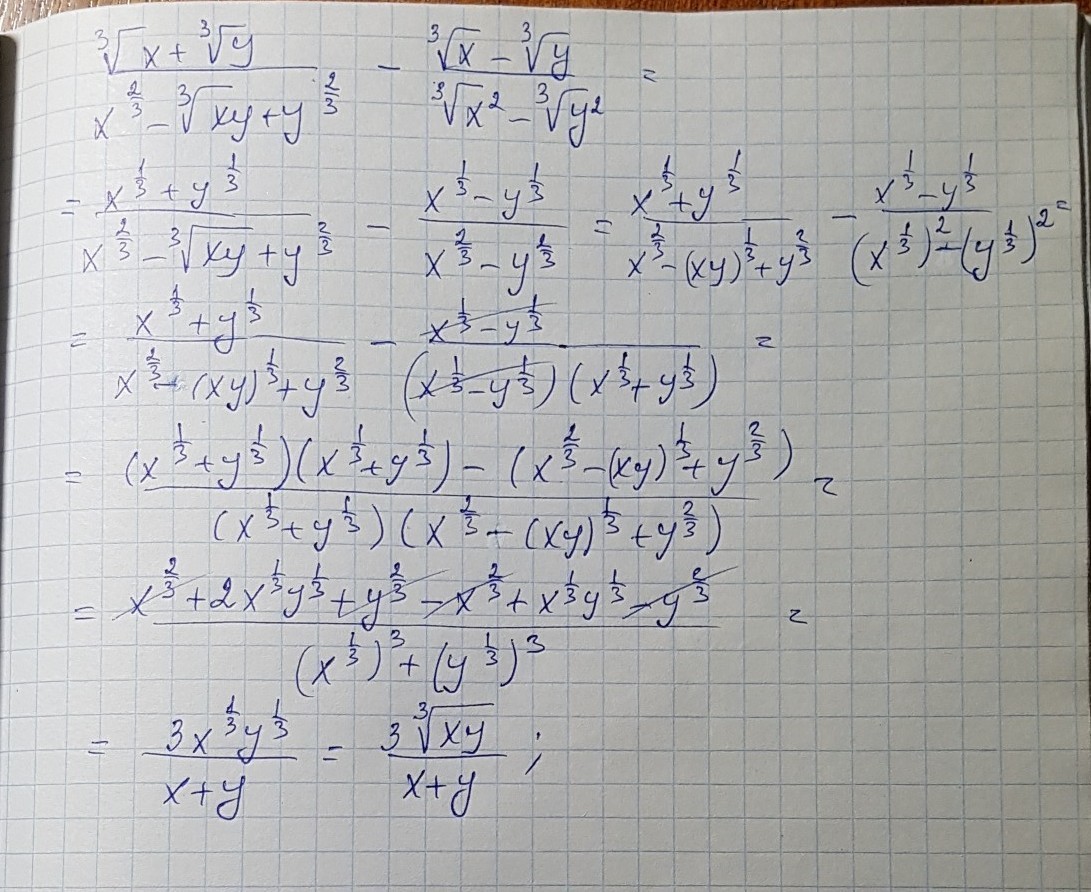 (∛x + ∛y)/(x^(2/3) - ∛xy + y^(2/3)) - (∛x - ∛y)/(∛x² - ∛y²) =
= (x^(1/3) + y^(1/3))/(x^(2/3) - ∛xy + y^(2/3)) - (x^(1/3) - y^(1/3))/(x^(2/3) - y^(2/3)) = (x^(1/3) + y^(1/3))/(x^(2/3) - (xy)^(1/3) + y^(2/3)) - (x^(1/3) - y^(1/3))/((x^(1/3))² - (y^(1/3))²) =
= (x^(1/3) + y^(1/3))/(x^(2/3) - (xy)^(1/3) + y^(2/3)) - (x^(1/3) - y^(1/3))/((x^(1/3) - y^(1/3))(x^(1/3) + y^(1/3))) =
= ((x^(1/3) + y^(1/3))(x^(1/3) + y^(1/3)) - (x^(2/3) - (xy)^(1/3) + y^(2/3)))/((x^(1/3) + y^(1/3))(x^(2/3) - (xy)^(1/3) + y^(2/3))) =
= (x^(2/3) + 2x^(1/3)y^(1/3) + y^(2/3) - x^(2/3) + x^(1/3)y^(1/3) - y^(2/3))/((x^(1/3))³ + (y^(1/3))³) =
= (3x^(1/3)y^(1/3))/(x+y) = (3∛xy)/(x+y) ;